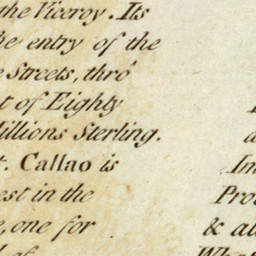 the Viceroy. Its
he entry of the
e Streets, thro'
t of Eighty
Millions Sterling.
t. Callao is
est in the
e, one for
In
Pro
& al